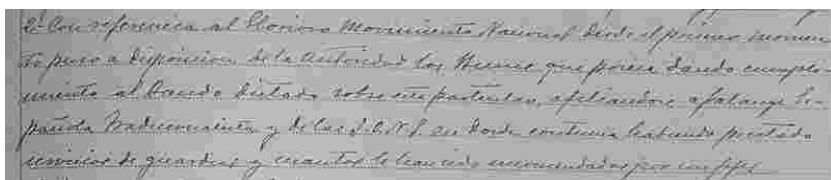 2º Con referencia al Glorioso Movimiento Nacional desde el primer momen
to puso a disposicion de la autoridad los Bienes que poseia dando cumpli-
miento al Bando dictado sobre este particular, afiliandose a falange Es-
pañola Tradicionalista y de las J.O.N.S. en donde continua habiendo prestado
servicios de guardias y cuantos le han sido encomendados por sus jefes